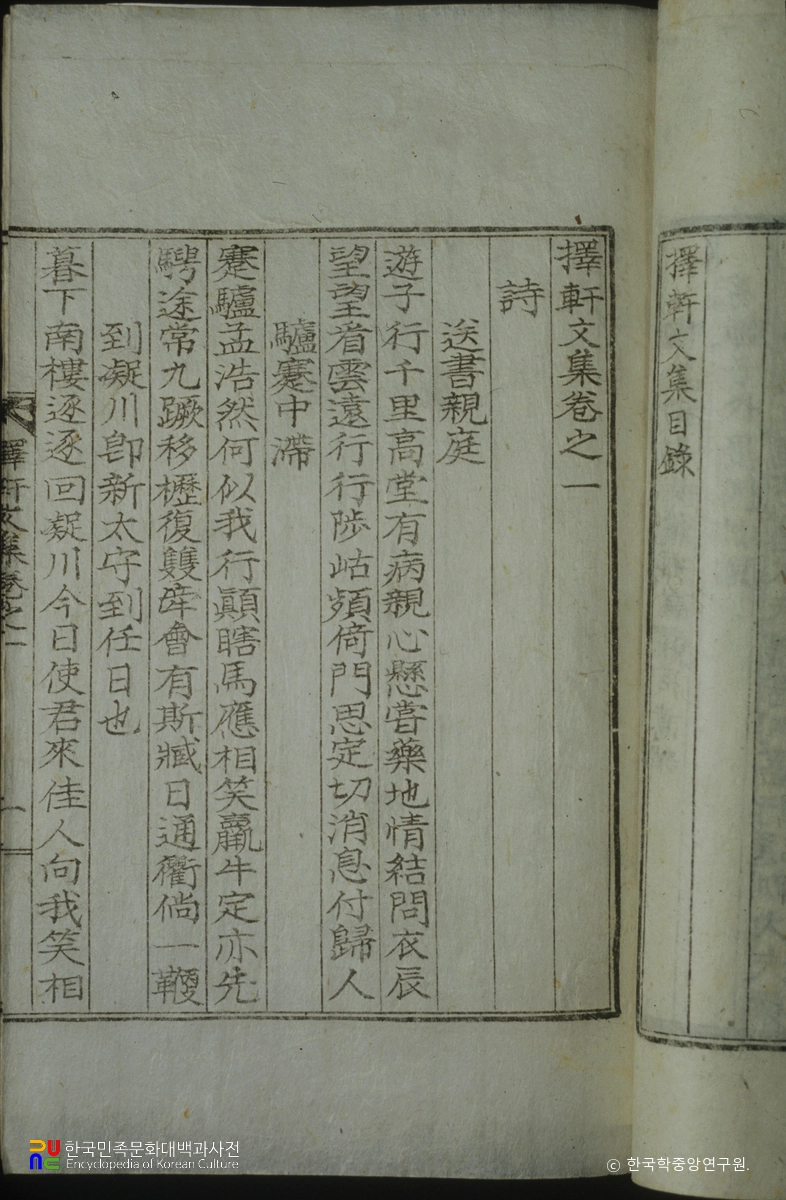 擇軒文集目錄
擇軒文集卷之一
詩
送書親庭
遊子行千里高堂有病親心懸甞藥地情結問衣辰
望望看雲遠行行陟岵頻倚門思定切消息付歸人
驢蹇中滯
蹇驢孟浩然何似我行顚瞎馬應相笑羸牛定亦先
騁途常九蹶移櫪復雙牽會有斯臧日通衢倘一鞭
到凝川卽新太守到任日也
暮下南樓逐逐回凝川今日使君來佳人向我笑相
擇軒文集卷之一
한국민족문화대백과사전
Encyclopedia of Korean Culture
© 한국학중앙연구원.